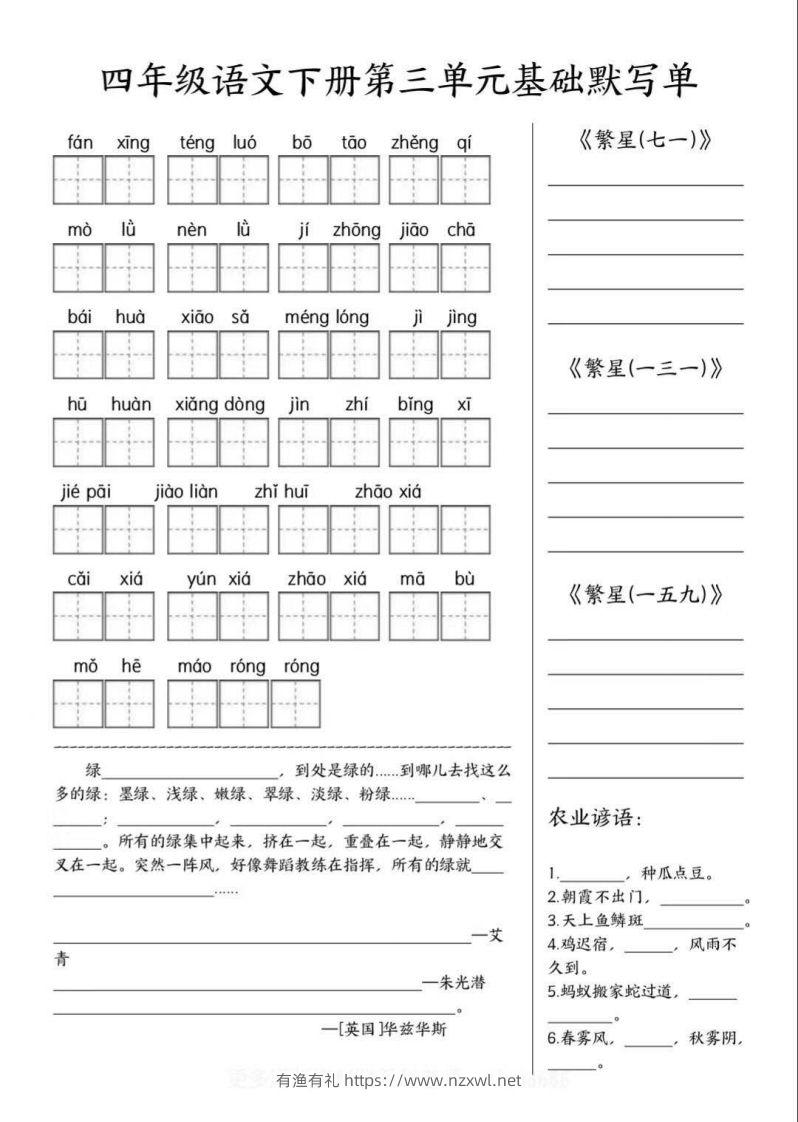 四年级语文下册第三单元基础默写单
fán xīng téng luó bō tāo zhěng qí
mò lǜ nèn lǜ jí zhōng jiāo chā
bái huà xiāo sǎ méng lóng jì jìng
hū huàn xiǎng dòng jìn zhí bīng xī
jié pāi jiào liàn zhǐ huī zhāo xiá
cǎi xiá yún xiá zhāo xiá mā bù
mǒ hē máo róng róng
绿____________________，到处是绿的……到哪儿去找这么
多的绿：墨绿、浅绿、嫩绿、翠绿、淡绿、粉绿……________、__
______；__________，__________，__________，______
______。所有的绿集中起来，挤在一起，重叠在一起，静静地交
叉在一起。突然一阵风，好像舞蹈教练在指挥，所有的绿就____
____________________……
________________________________________—艾
青
________________________________________—朱光潜
________________________________________。
—[英国]华兹华斯
《繁星(七一)》
《繁星(一三一)》
《繁星(一五九)》
农业谚语：
1.________，种瓜点豆。
2.朝霞不出门，__________。
3.天上鱼鳞斑____________。
4.鸡迟宿，______，风雨不
久到。
5.蚂蚁搬家蛇过道，______
________。
6.春雾风，______，秋雾阴，
______。
有渔有礼 https://www.nzxwl.net